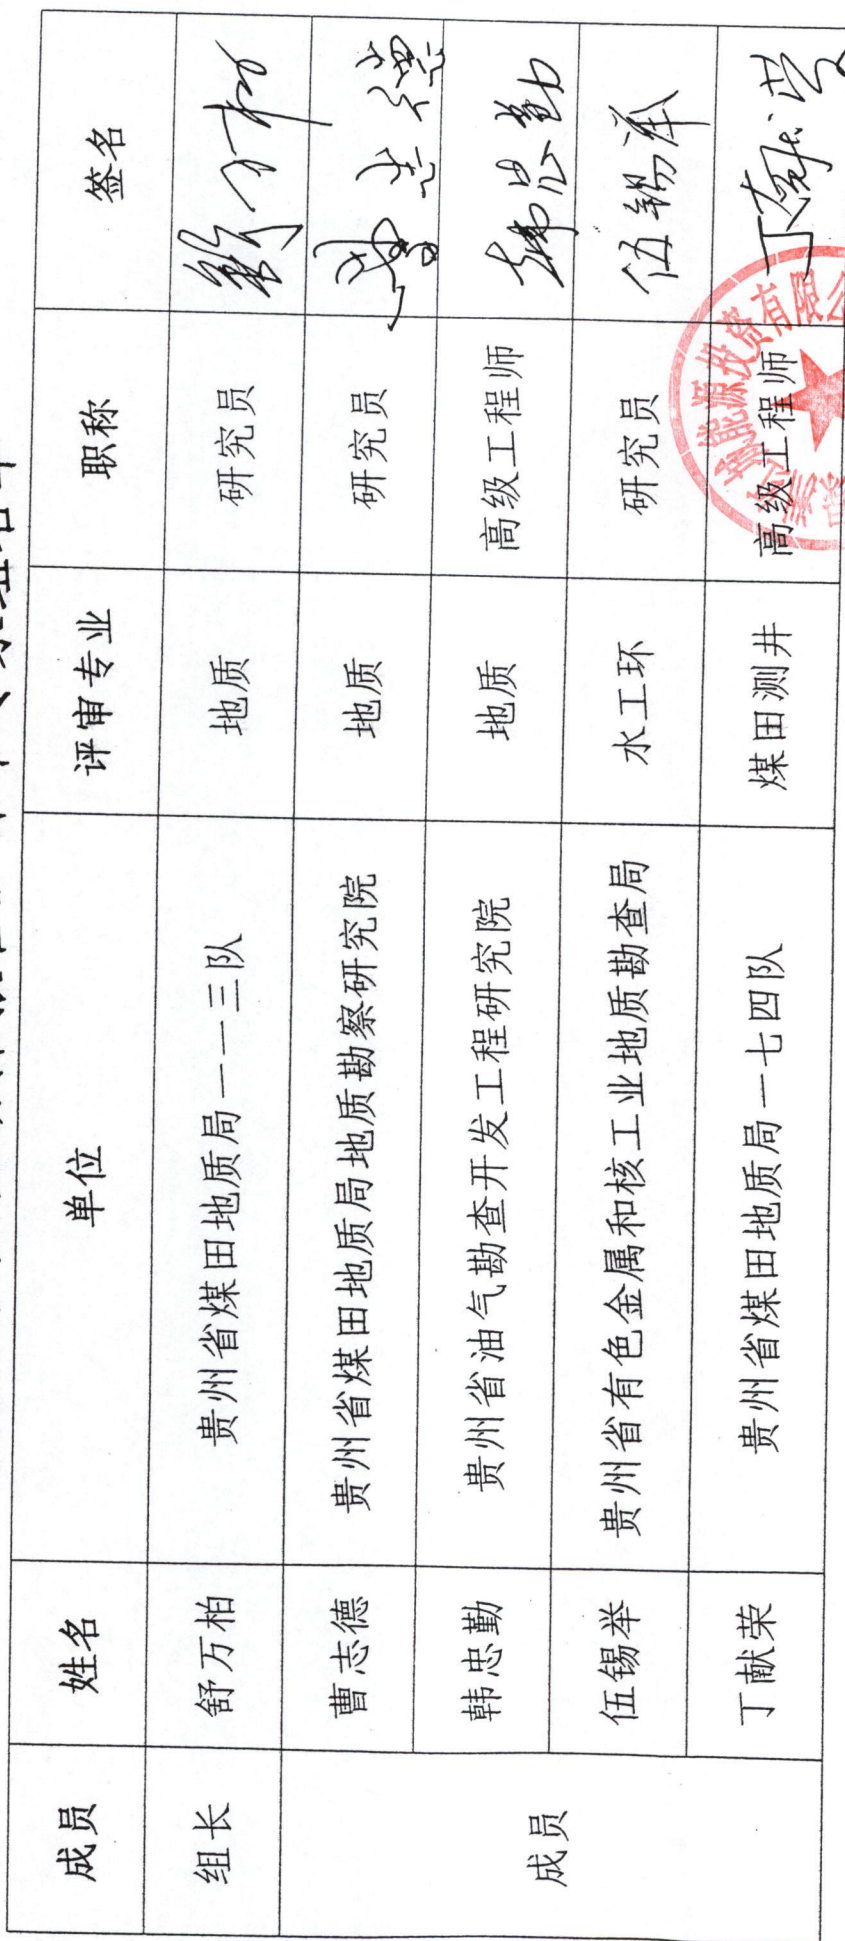 成员 姓名 单位 评审专业 职称 签名
组长 舒万柏 贵州省煤田地质局一一三队 地质 研究员 舒万柏
成员 曹志德 贵州省煤田地质局地质勘察研究院 地质 研究员 曹志德
韩忠勤 贵州省油气勘查开发工程研究院 地质 高级工程师 韩忠勤
伍锡举 贵州省有色金属和核工业地质勘查局 水工环 研究员 伍锡举
丁献荣 贵州省煤田地质局一七四队 煤田测井 高级工程师 丁献荣
能源投资有限公